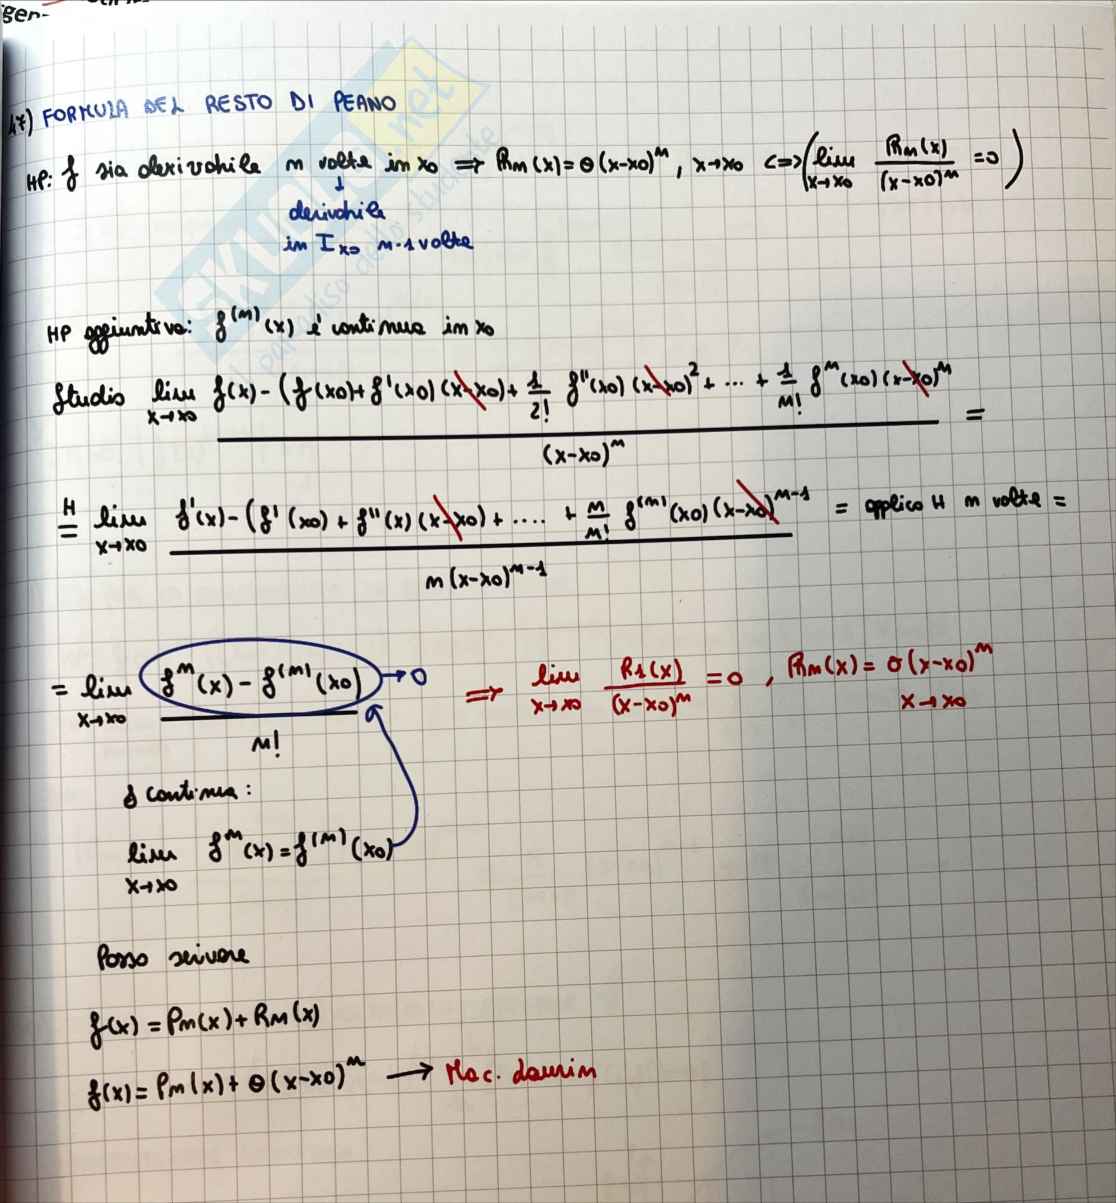 gen-
17) FORMULA DEL RESTO DI PEANO
HP: f sia derivabile n volte in x0 => Rn(x) = o(x-x0)^n, x→x0 <=> (lim x→x0 Rn(x)/(x-x0)^n = 0)
↓
derivabile
in Ix0 n-1 volte
HP aggiuntiva: f^(n)(x) è continua in x0
Studio lim x→x0 f(x) - (f(x0) + f'(x0)(x-x0) + 1/2! f''(x0)(x-x0)^2 + ... + 1/n! f^n(x0)(x-x0)^n / (x-x0)^n =
H= lim x→x0 f'(x) - (f'(x0) + f''(x)(x-x0) + .... + n/n! f^(n)(x0)(x-x0)^n-1 / n(x-x0)^n-1 = applico H n volte =
= lim x→x0 f^n(x) - f^(n)(x0) / n! → 0 => lim x→x0 R1(x)/(x-x0)^n = 0, Rn(x) = o(x-x0)^n x→x0
f continua:
lim x→x0 f^n(x) = f^(n)(x0)
Posso scrivere
f(x) = Pn(x) + Rn(x)
f(x) = Pn(x) + o(x-x0)^n → Mac. Laurin
SKUOLA.net
il paradiso dello studente